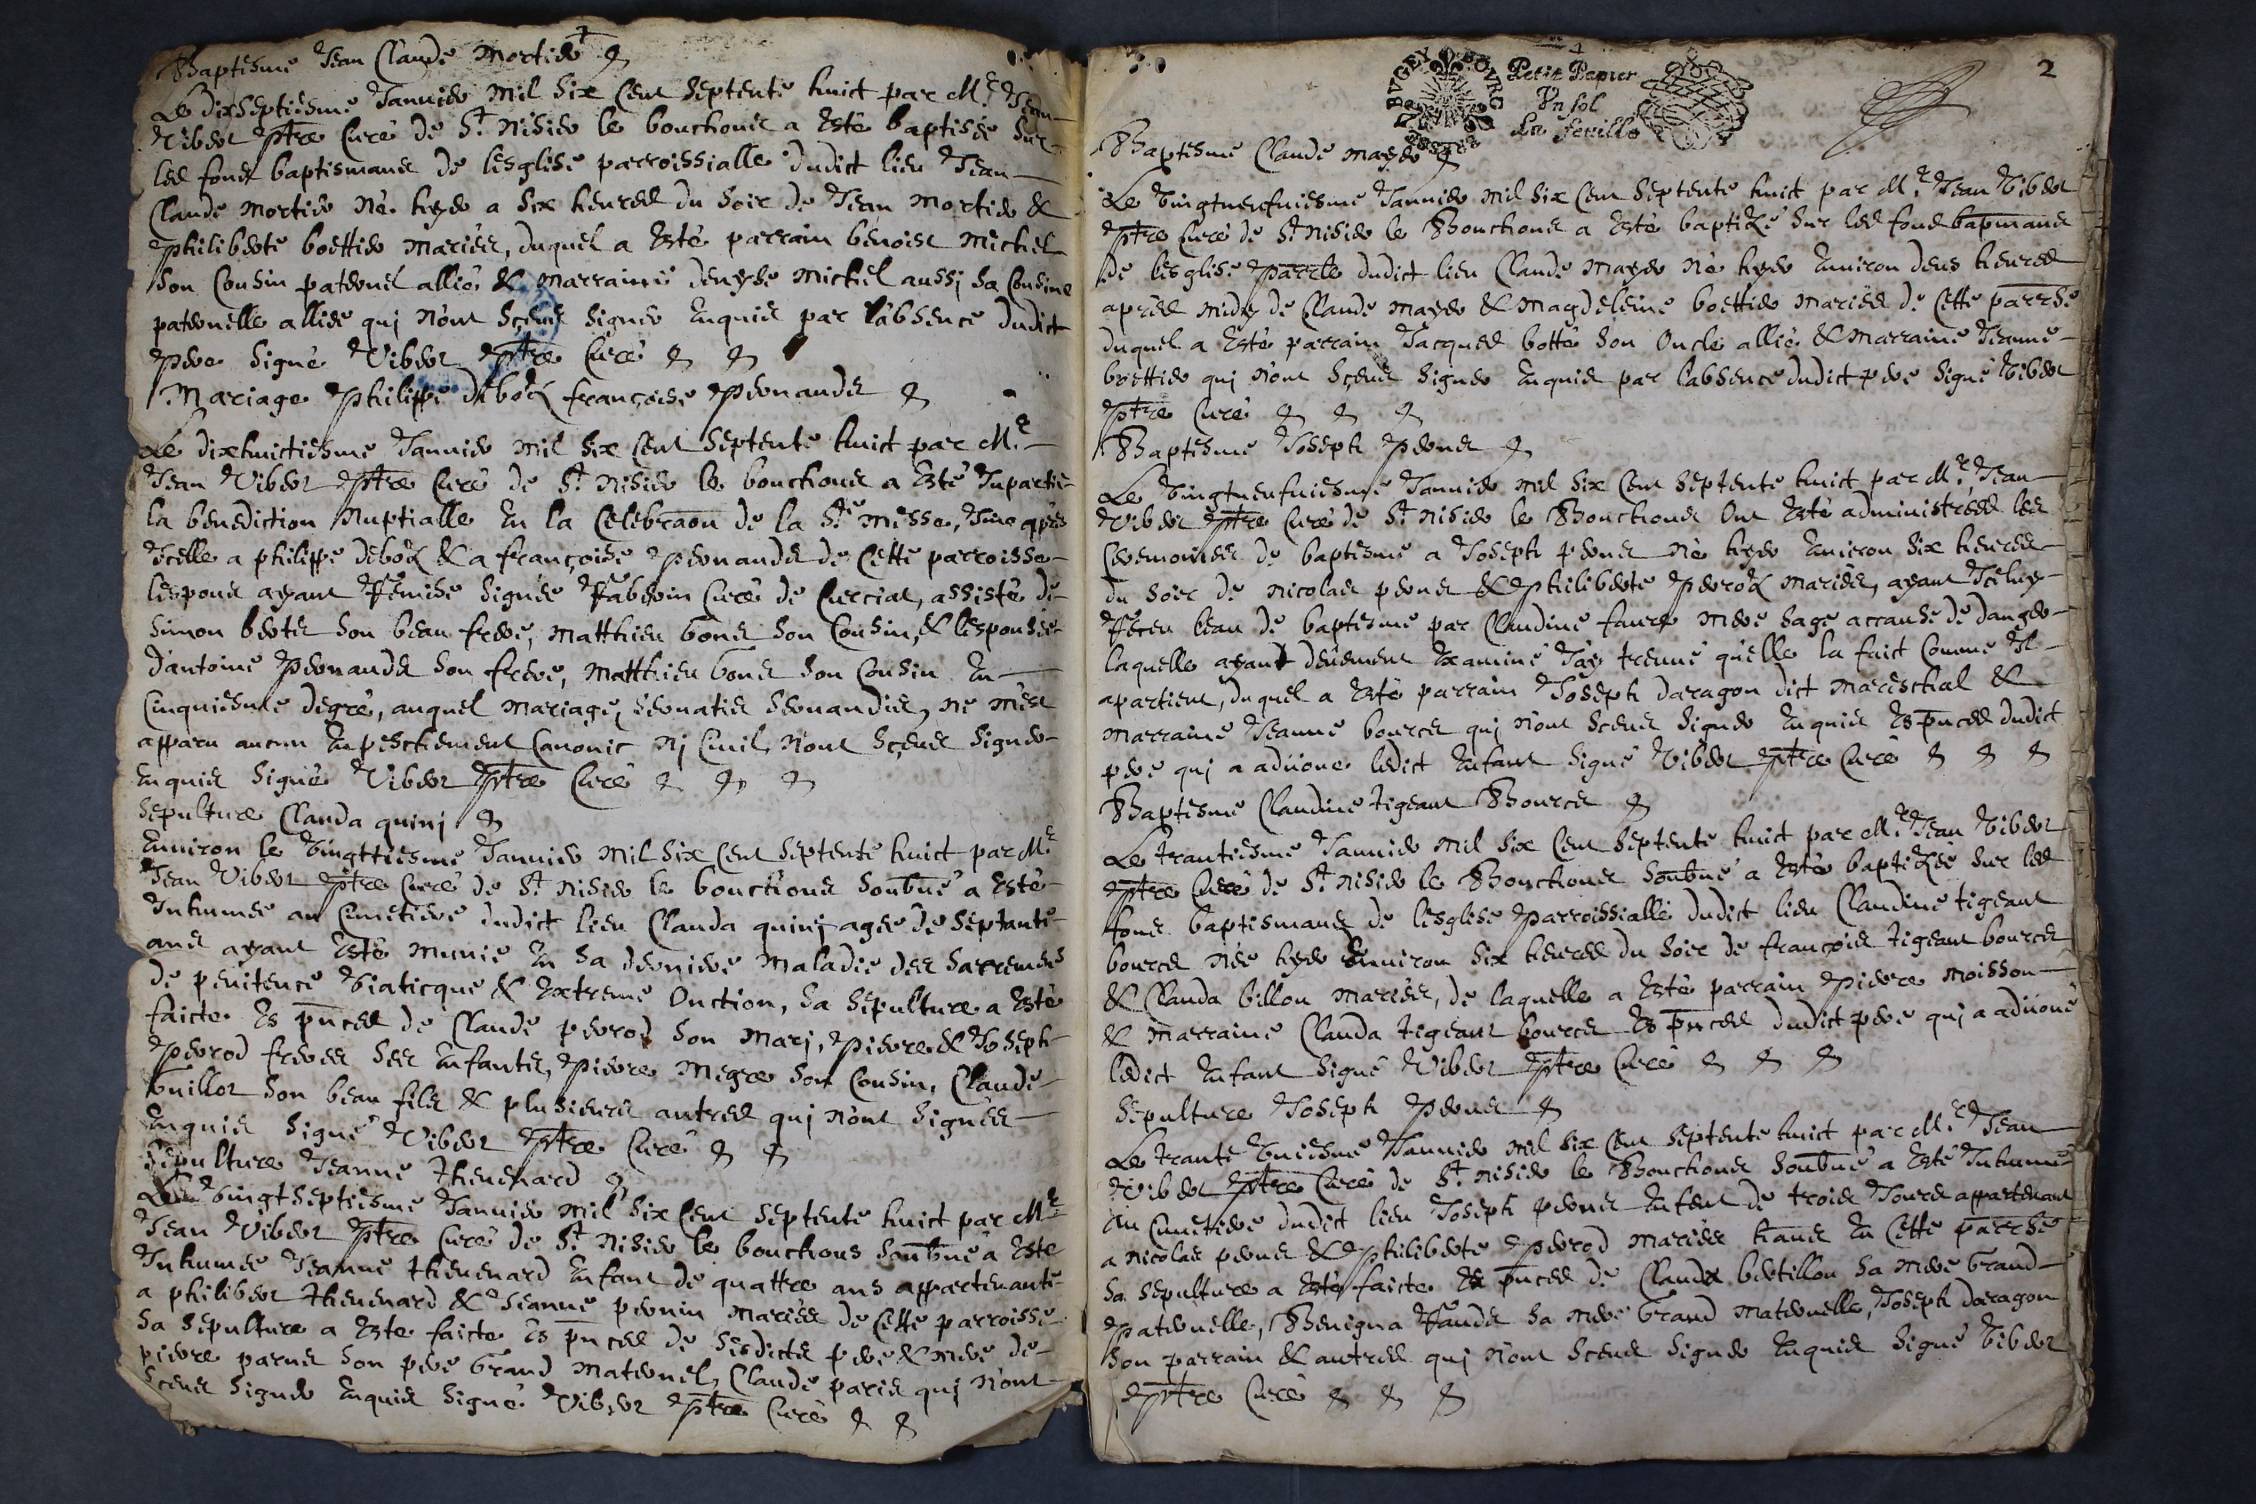 Baptesme Jean Claude mortier
Le dixseptiesme Januier mil six cent septente huict par Mre Jean
Viber ptre Curé de St nisier le bouchoux a esté baptisée sur
les fonds baptismaux de lesglise parroissialle dudict lieu Jean
Claude mortier né hyer a six heures du soir de Jean mortier &
philiberte boettier mariés, duquel a esté parrain benoist michel
son Cousin paternel allié & marraine denyse michel aussj sa Cousine
paternelle alliée quj nont sçeus signer enquis par labsence dudict
pere signé Viber ptre Curé
Mariage philippe debox françoise pernandes
Le dixhuictiesme Januier mil six cent septente huict par Mre
Jean Viber ptre Curé de St nisier le bouchoux a esté Inpartie
la benediction Nuptialle en la Celebraon de la Ste messe,
Icelle a philippe debox & a françoise pernandes de Cette parroisse
lespoux ayant Remise signée Curé de Curciat, assisté de
simon bertes son beau frere, matthieu bones son Cousin, & lespousée
dantoine pernandes son frere, matthieu bones son Cousin en
Cinquiesme degré, auquel mariage, seruatis seruandis, ne mest
apparu aucun enpeschement Canonic nj Ciuil, nont sçeus signer
enquis signé Viber ptre Curé
Sepulture Clauda quinj
Enuiron le vingttiesme Januier mil six cent septente huict par Mre
Jean Viber ptre Curé de St nisier le bouchoux soubné a esté
Inhumée au Cimetiere dudict lieu Clauda quinj agée de septante
ans ayant esté munie en sa derniere maladie des sacremens
de penitence viaticque & extreme Onction, sa sepulture a esté
faicte es pnces de Claude perrod son marj, pierre & Joseph
perrod freres ses enfants, pierre megre son Cousin, Claude
vuillot son beau fils & plusieurs autres quj nont signées
enquis signé Viber ptre Curé
Sepulture Jeanne theuenard
Le vingtseptiesme Januier mil six cent septente huict par Mre
Jean Viber ptre Curé de St nisier le bouchoux soubné a este
Inhumée Jeanne theuenard enfant de quattre ans appartenante
a philiber theuenard & Jeanne pernin mariés de Cette parroisse
sa sepulture a este faicte es pnces de sesdicts pere & mere de
pierre parnes son pere Grand maternel, Claude paris quj nont
sçeus signer enquis signé Viber ptre Curé
BVGEY BOVRG
Petit Papier
Vn sol
La feuille
2
Baptesme Claude mayer
Le vingtneufuiesme Januier mil six cent septente huict par Mre Jean Viber
ptre Curé de St nisier le Bouchoux a esté baptizé sur les fonds bapmaux
de lesglise parrle dudict lieu Claude mayer né hyer enuiron deux heures
apres midy de Claude mayer & magdeleine boettier mariés de Cette parrse
duquel a esté parrain Jacques botte son Oncle allié & marraine Jeanne
boettier quj nont sçeus signer enquis par labsence dudict pere signé Viber
ptre Curé
Baptesme Joseph pernes
Le vingtneufuiesme Januier mil six cent septente huict par Mre Jean
Viber ptre Curé de St nisier le Bouchoux ont esté administrées les
Ceremonies de baptesme a Joseph pernes né hyer enuiron six heures
du soir de nicolas pernes & philiberte perrox mariés, ayant Iceluy
Receu leau de baptesme par Claudine faure mere sage accause de danger
laquelle ayant deüement examiné Jay treuué quelle la faict Comme Il
apartient, duquel a esté parrain Joseph daragon dict mareschal &
marraine Jeanne bources quj nont sceus signer enquis es pnces dudict
pere quj a adüoue ledict enfant signé Viber ptre Curé
Baptesme Claudine tigeant Bources
Le trantiesme Januier mil six cent septente huict par Mre Jean Viber
ptre Curé de St nisier le Bouchoux soubné a esté baptizée sur les
fons baptismaux de lesglise parroissialle dudict lieu Claudine tigeant
bources née hyer enuiron six heures du soir de françois tigeant bources
& Clauda billon mariés, de laquelle a esté parrain pierre moisson
& marraine Clauda tigeant bources es pnces dudict pere quj a adüoué
ledict enfant signé Viber ptre Curé
Sepulture Joseph pernes
Le trante vniesme Januier mil six cent septente huict par Mre Jean
Viber ptre Curé de St nisier le Bouchoux soubné a esté Inhumé
au Cimetiere dudict lieu Joseph pernes enfent de trois Jours appartenant
a nicolas pernes & philiberte perrod mariés hants en Cette parrse
sa sepulture a esté faicte es pnces de Clauda bertillon sa mere Grand
paternelle, Benigna Randes sa mere Grand maternelle, Joseph daragon
son parrain & autres quj nont sceus signer enquis signé Viber
ptre Curé